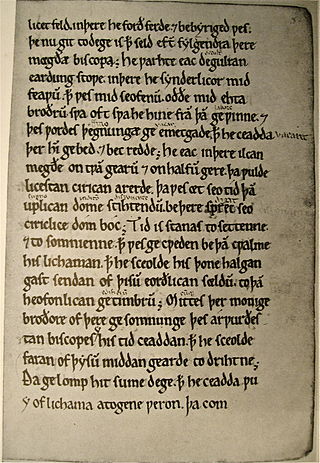 licetfeld. inþere he forð ferde. ⁊ bebyriged wes.
þe nu git todege is þ seld eft fylgendra þere
megðæ biscopa; he warhte eac degulran
eardung stope. inþere he synderlicor mid
feawū. þ wes mid seofenū. oððe mid ehta
broðrū swa oft swa he hine frā þā ge winne. ⁊
þes wordes þegnunga ge emetgade. þ he ceadda
þer hi gebed. ⁊ bec redde; he eac inþere ilcan
megðe on twā gearū ⁊ on halfū gere. þa wulde
licetfan cirican arerde. þa wes oet seo tid þā
uplican dome stihtendū. beþere spret seo
ciriclice dom boc; Tid is stanas to settenne.
⁊ to somnienne. þ wes ge cweden be þā cwalme
his lichaman. þ he sceolde his þone halgan
gast sendan of þisū eorðlican seldū. to þā
heofonlican getimbrū; Mittes þer monige
broðore of þere ge somnunge þes arwurðes
tan biscopes his tid ceaddan. þ he sceolde
faran of þysū middan gearde to drihtne;
Ða gelomp hit sume dege. þ he ceadda wu
of lichama atogene weron. þa com